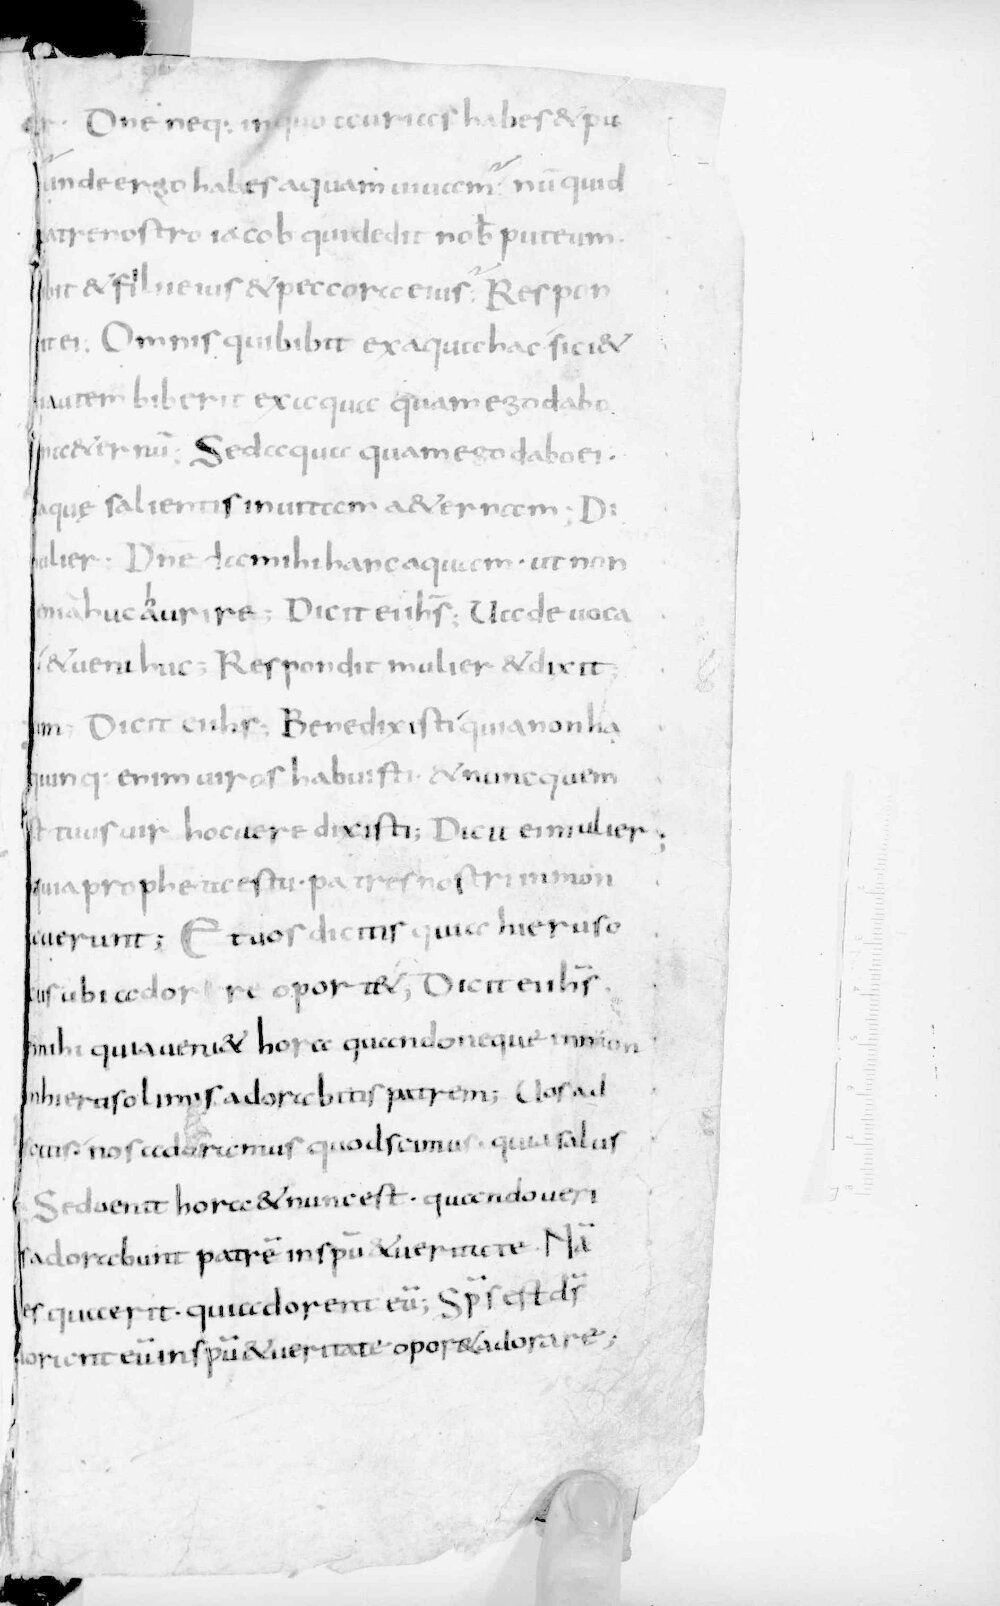 er. Dn̄e neq; in quo aurias habes & pu
unde ergo habes aquam uiuam; nū quid
patre nostro iacob qui dedit nob̄ puteum.
bit & filii eius & peccora eius; Respon
it ei; Omnis qui bibit ex aqua hac siti&
autem biberit ex aqua quam ego dabo
in a&ernū; Sed aqua quam ego dabo ei.
aquę salientis in uitam a&ernam; Di
ulier. Dn̄e da mihi hanc aquam. ut non
niā huc haurire; Dicit ei ih̄s; Uade uoca
& ueni huc; Respondit mulier & dixit;
um; Dicit ei ih̄s; Bene dixisti quia non ha
quinq; enim uiros habuisti. & nunc quem
st tuus uir hoc uere dixisti; Dicit ei mulier;
quia propheta es tu. patres nostri in mon
auerunt; Et uos dicitis quia hieruso
cus ubi adorare oport&; Dicit ei ih̄s.
mihi quia ueni& hora quando neque in mon
in hierusolimis adorabitis patrem; Uos ad
scitis. nos adoramus quod scimus. quia salus
Sed uenit hora & nunc est. quando ueri
s adorabunt patrē in sp̄u & ueritate. Nā
es quaerit. qui adorent eū; Sp̄s est d̄s
dorent eū in sp̄u & ueritate oport& adorare;